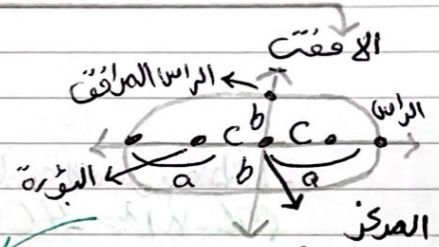 الافقي
الراس المرافق
الراس
b
C C
b
البؤرة
a a
المركز